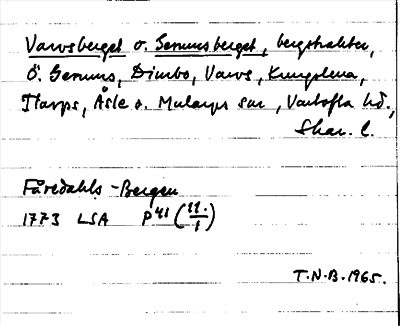 Varvsberget o. Gerumsberget, bergstrakter,
Ö. Gerums, Dimbo, Varvs, Kungslena,
Hårps, Åsle o. Mularps snr, Vartofta hd.,
Skar. l.
Fåredahls-Bergen
1773 LSA P41 (11./1)
T.N.B. 1965.